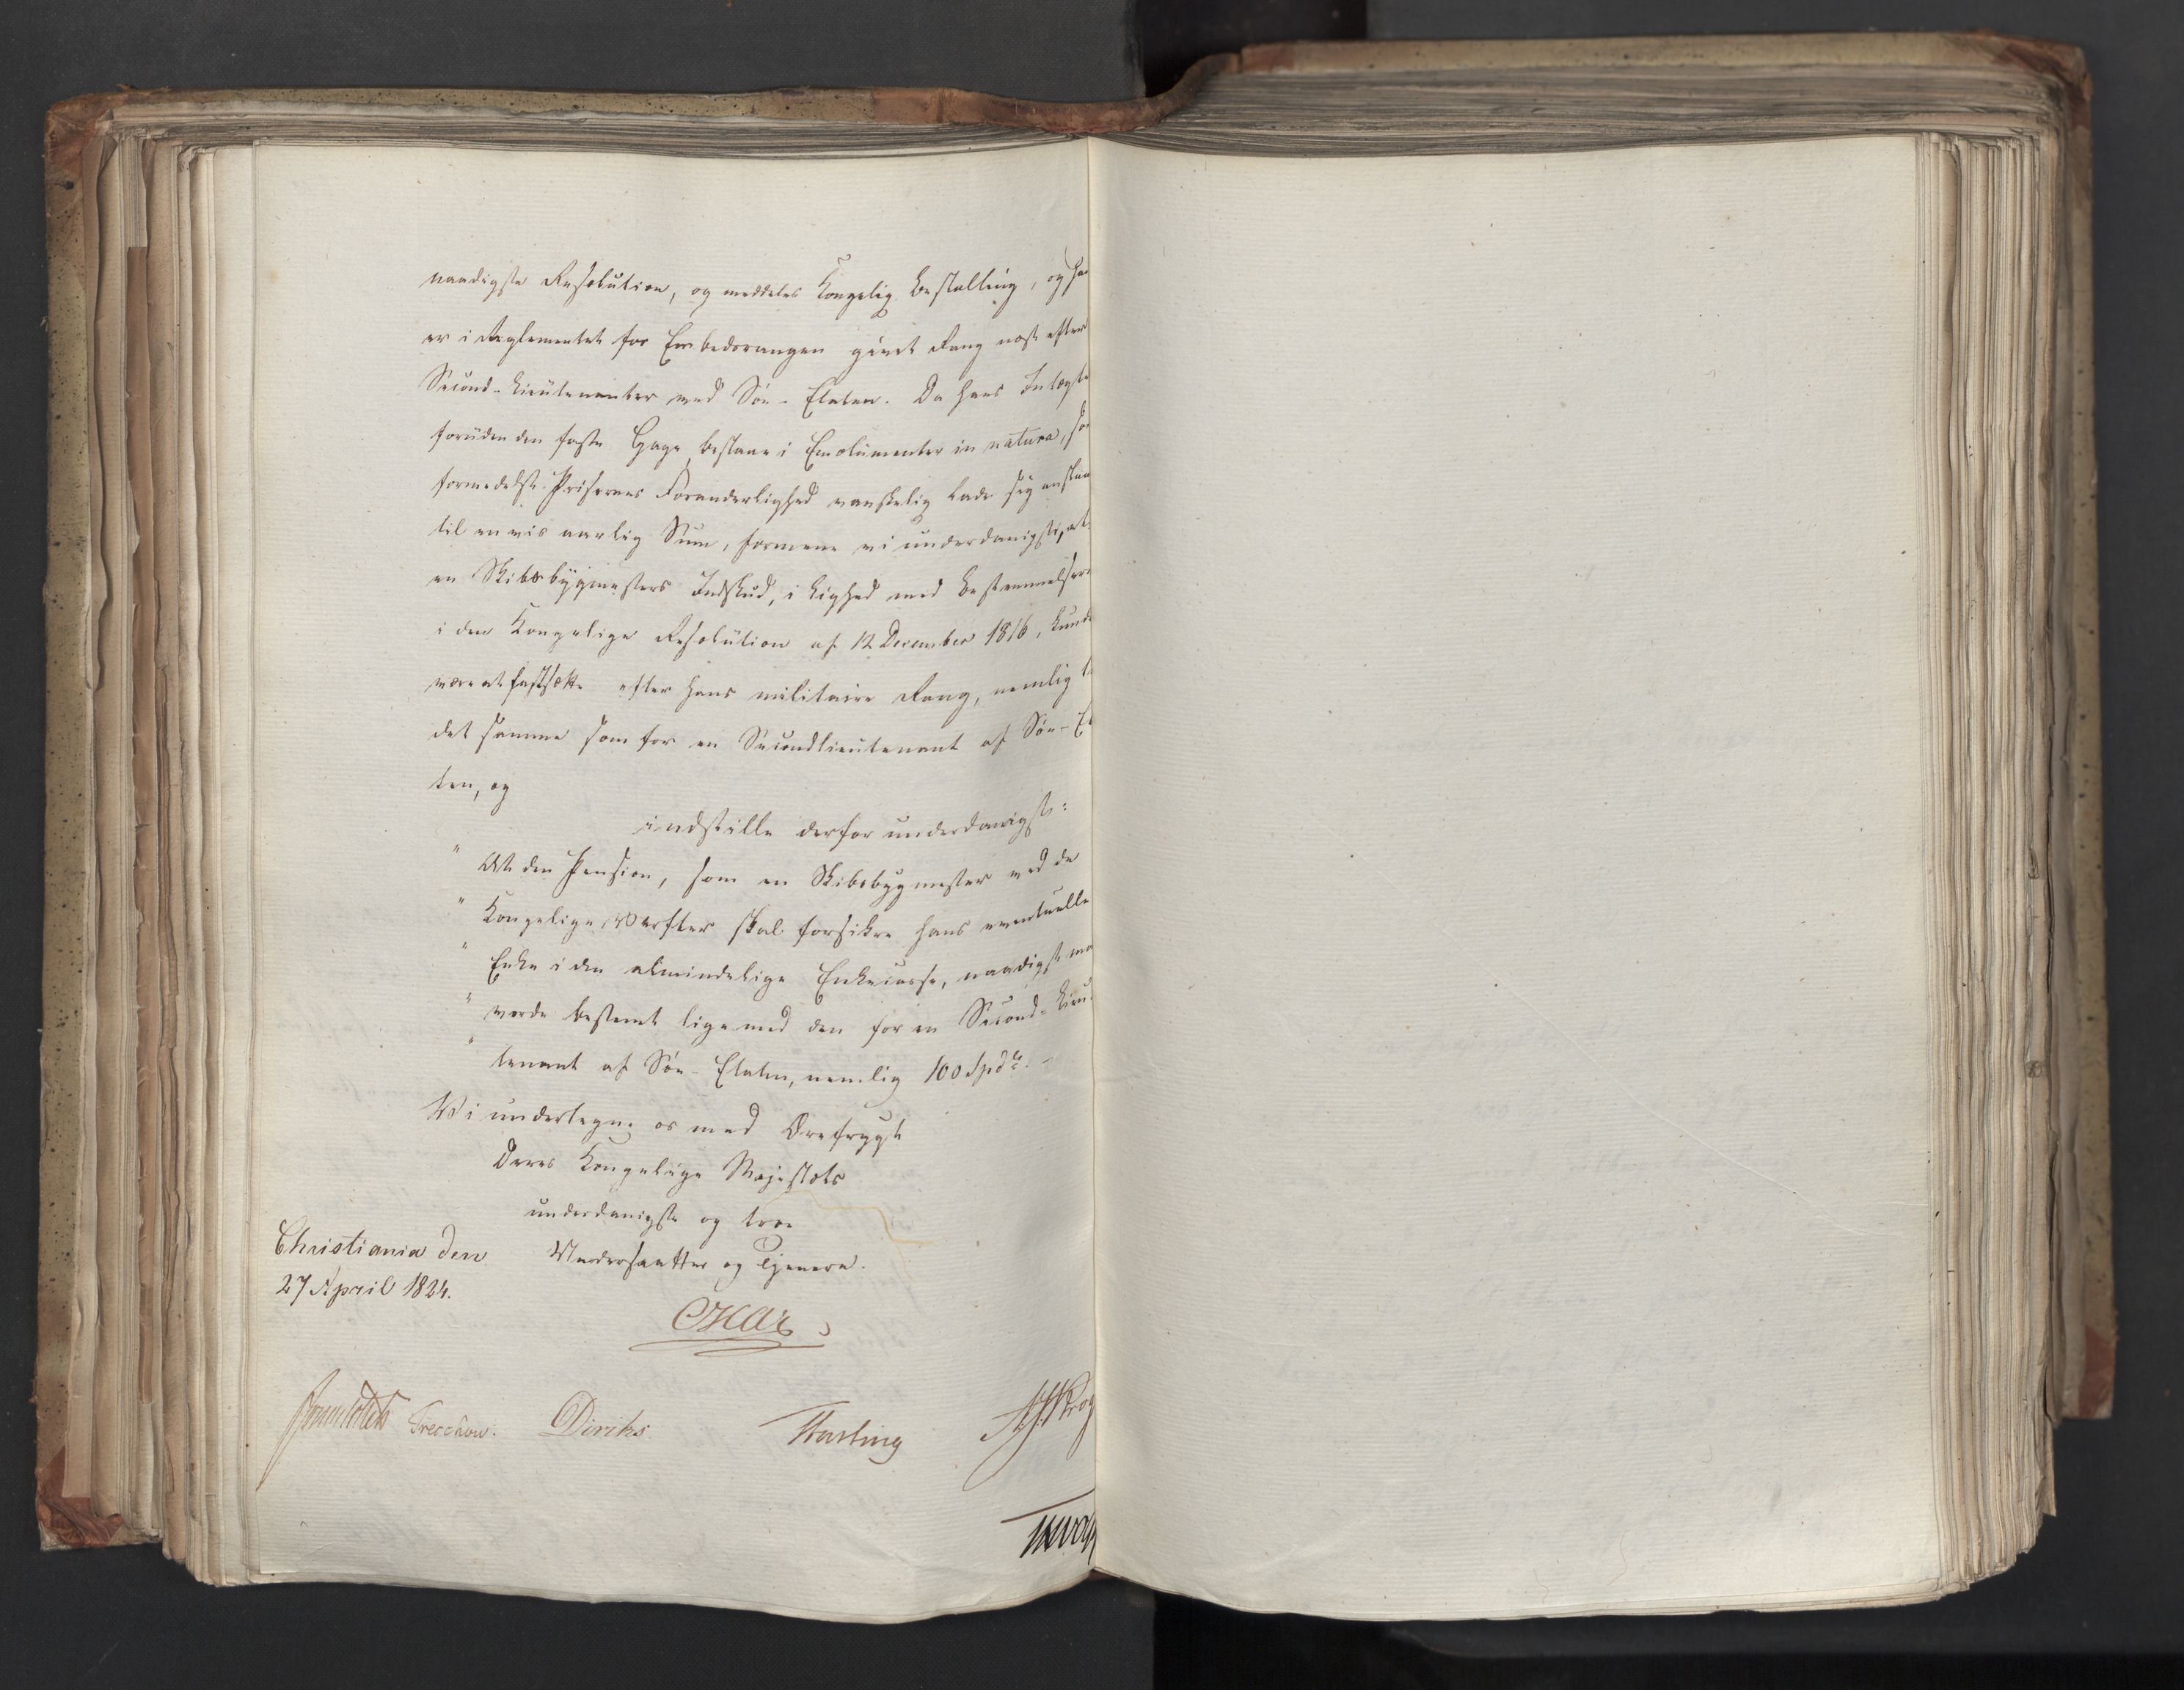 naadigste Resolution, og meddeles Kongelig Bestalling, og han
er i Reglementet for Embedsrangen givet Rang næst efter
Second-Lieutenanter ved Søe-Etaten. Da hans Indtægter
foruden den faste Gage bestaae i Emolumenter in natura, som
formedelst Prisernes Foranderlighed vanskelig lade sig anslaae
til en vis aarlig Sum, formene vi underdanigst, at
en Skibsbygmesters Indskud, i Lighed med Bestemmelserne
i den Kongelige Resolution af 12 December 1816, kunde
være at fastsætte efter hans militaire Rang, nemlig til
det samme som for en Secondlieutenant af Søe-Eta
ten, og
indstille derfor underdanigst:
" At den Pension, som en Skibsbygmester ved de
" Kongelige Værfter skal forsikre hans eventuelle
" Enke i den almindelige Enkecasse, naadigst maa
" vorde bestemt lige med den for en Second-Lieu-
" tenant af Søe-Etaten, nemlig 100 Spdlr. -
Vi undertegne os med Ærefrygt
Deres Kongelige Majestæts
underdanigste og troe
Christiania den Undersaatter og Tjenere.
27 April 1824.
Oscar
Sommerfeldt Treschow. Diriks. Fasting Krog